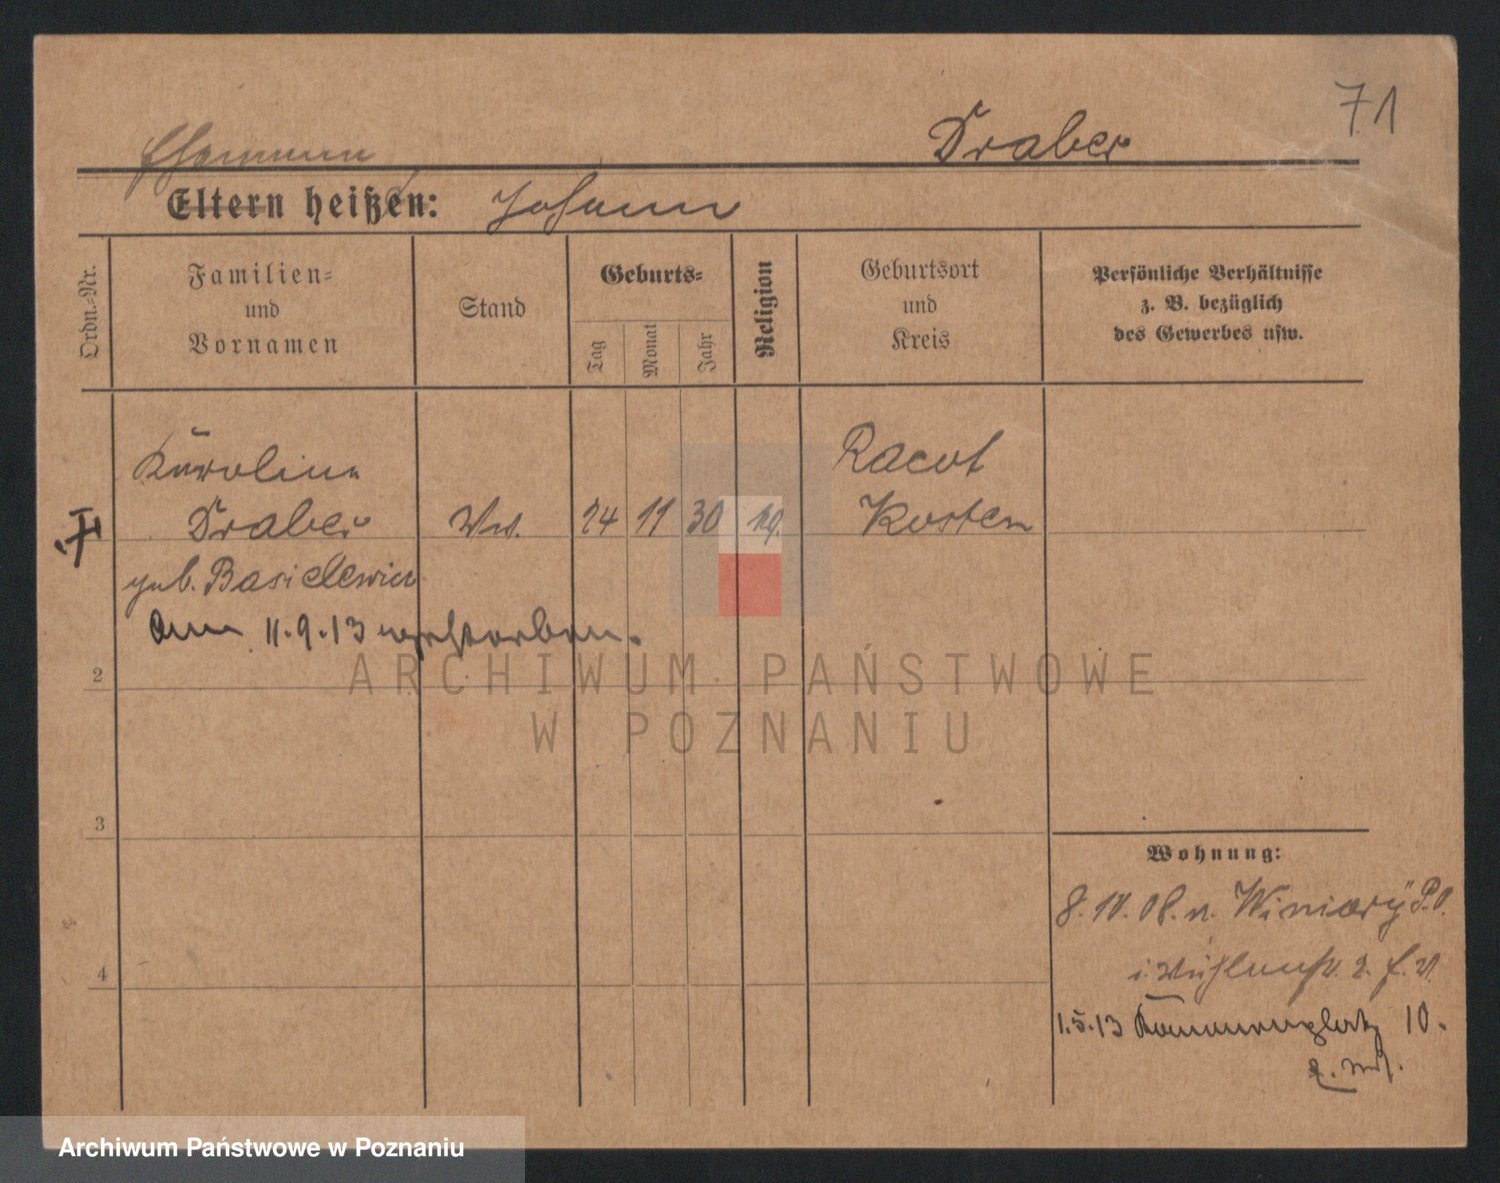 71
Ehemann
Draber
Eltern heißen: Johann
Ordn.-Nr.
Familien-
und
Vornamen
Stand
Geburts-
Tag
Monat
Jahr
Religion
Geburtsort
und
Kreis
Persönliche Verhältnisse
z. B. bezüglich
des Gewerbes usw.
Karoline
Draber Ww. 24 11 30
geb.
Racot
Kosten
am 11.9.13 verstorben.
2
3
4
Wohnung:
8.10.08. n. Winiary
1.5.13 10.
ARCHIWUM PAŃSTWOWE
W POZNANIU
Archiwum Państwowe w Poznaniu